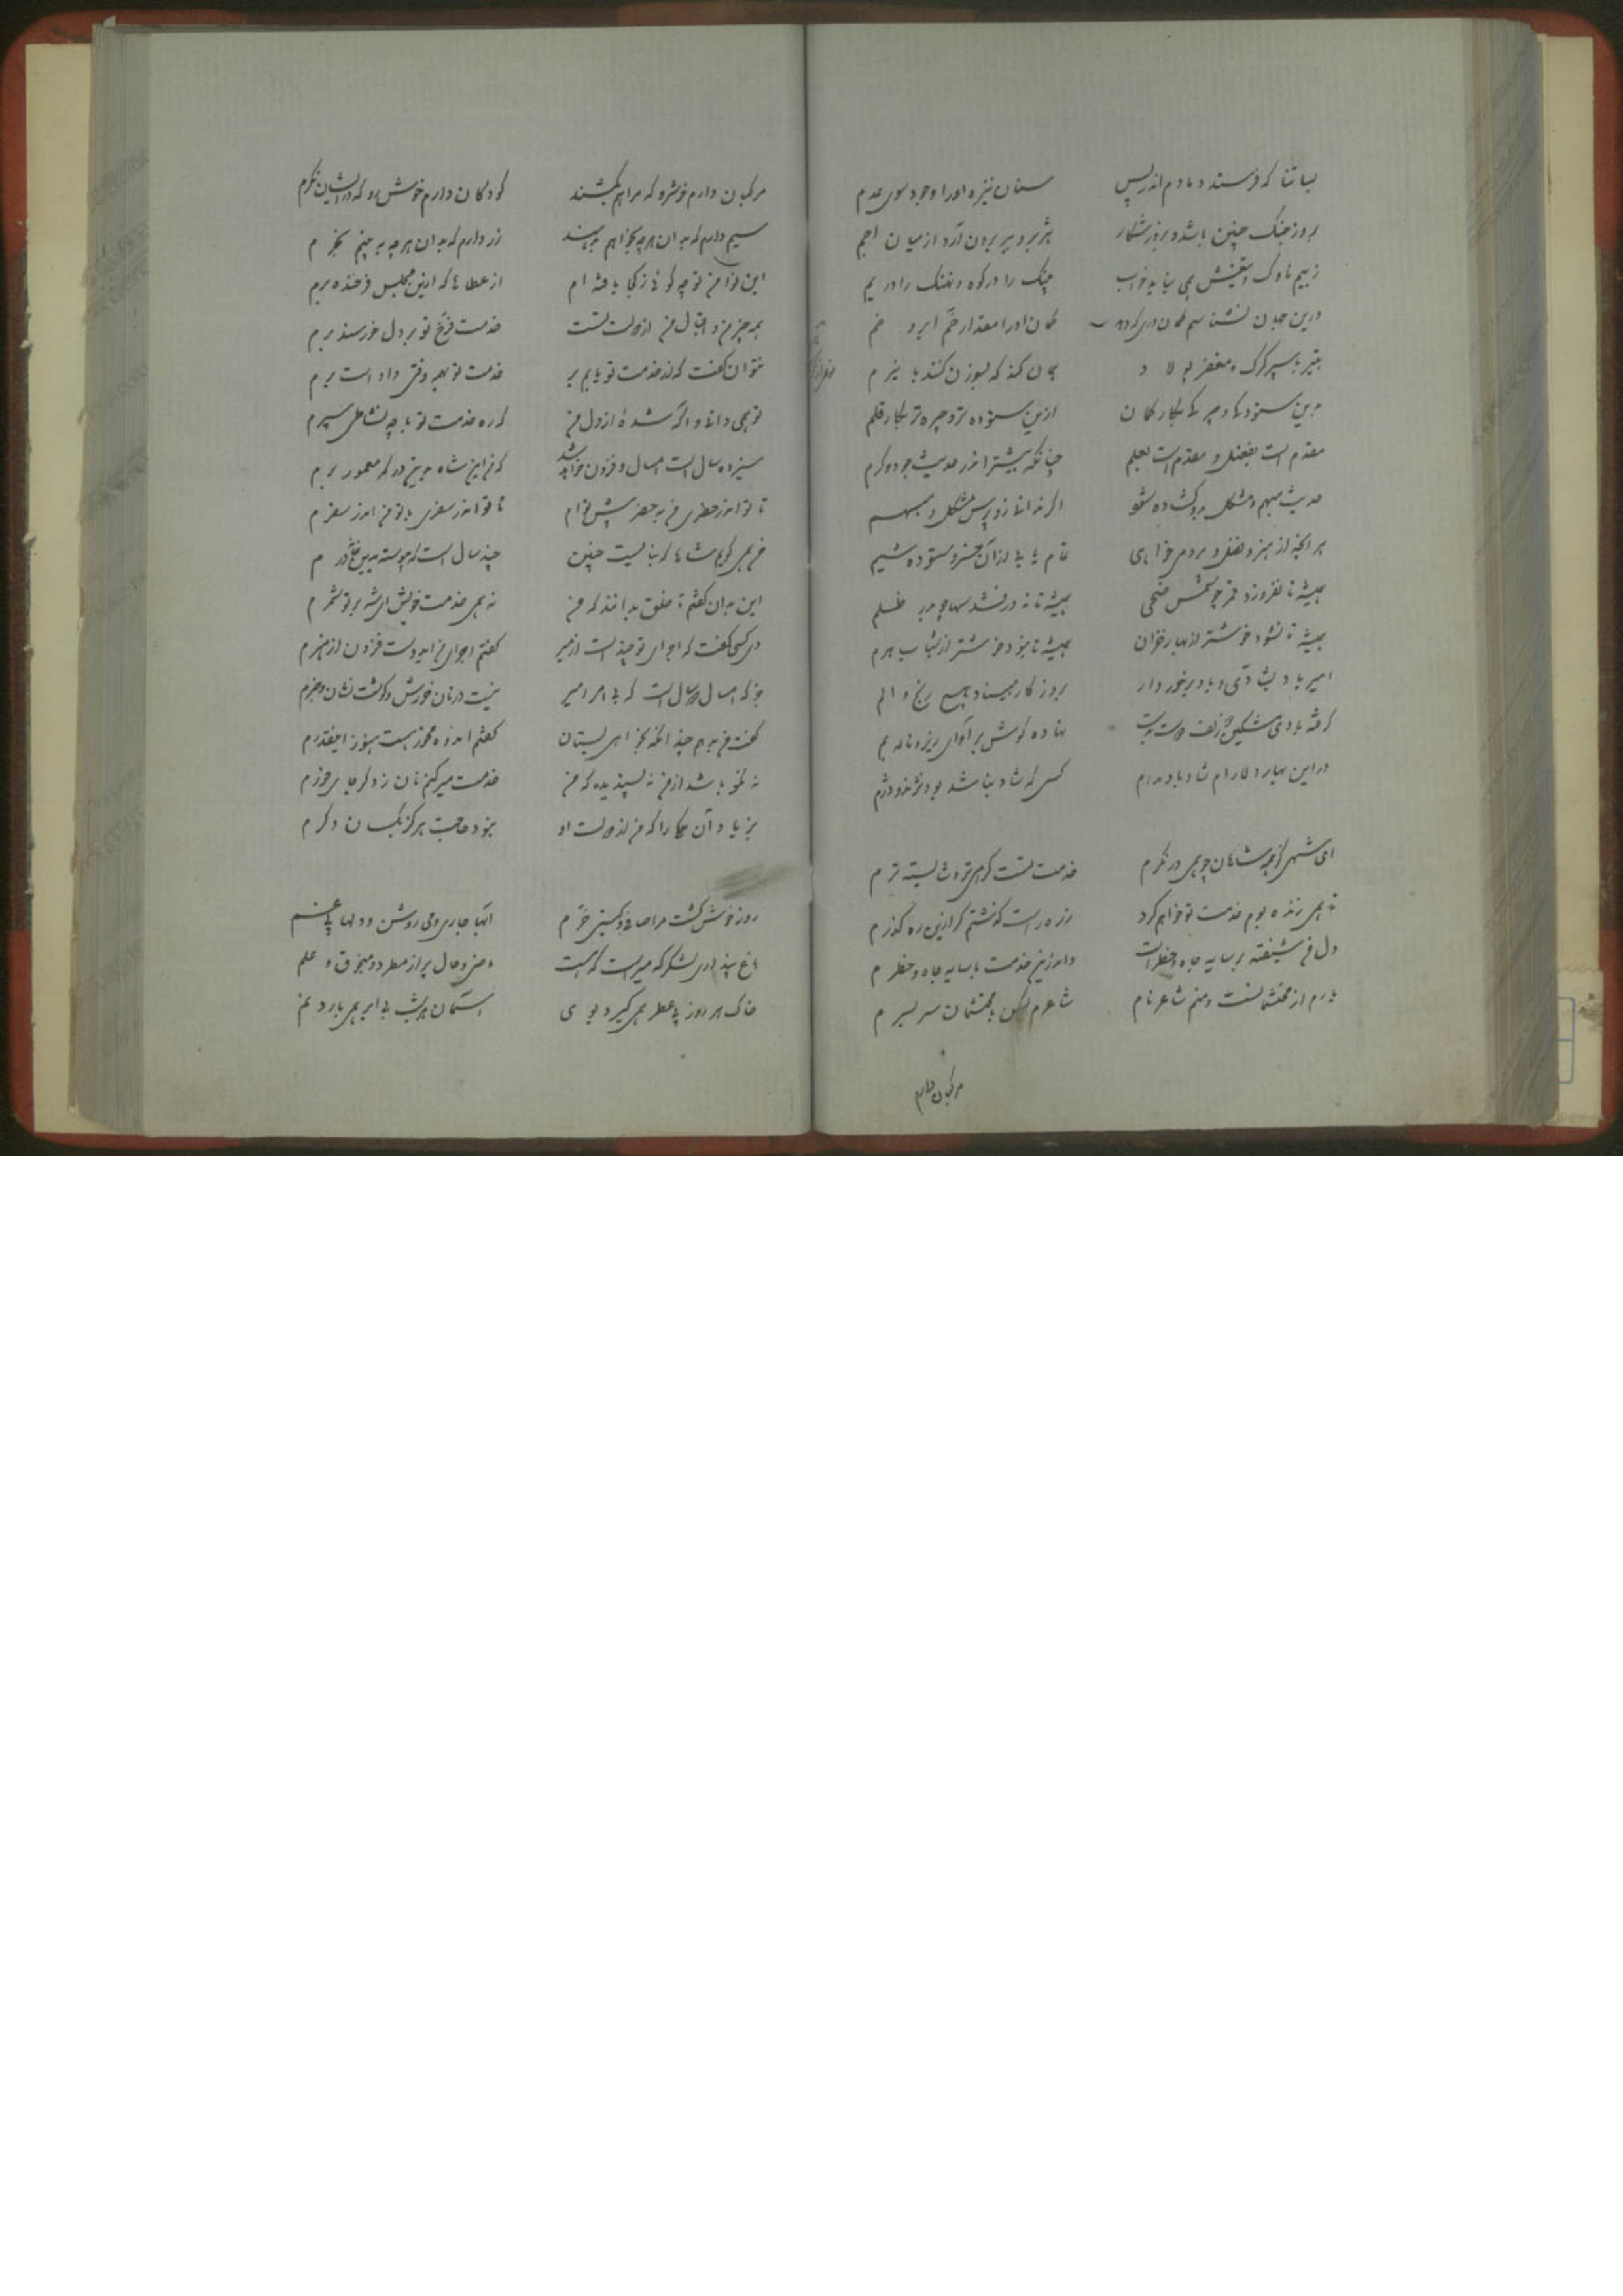 بسا تنا که فرستد دمادم اندر پس سنان نیزه او را وجود سوی عدم
بروز جنک چنین باشد و بروز شکار هژبر و ببر برون آرد از میان اجم
ز بیم ناوک و تیغش همی نیاید خواب پلنک را در کوه و نهنک را در یم
درین جهان نشناسم کمان وری که دهد کمان او را مقدار خم ابرو خم
بتیر با سپر کرک و مغفر پولاد همان کند که بسوزن کنند با بیرم
برین ستوده و چیره بکار کمان ازین ستوده‌تر و چیره‌تر بکار قلم
مقدم است بفضل و مقدم است بعلم چنانکه بیشتر اندر حدیث جود و کرم
حدیث مبهم و مشکل بدو کشاده شود اکر ندانی رو پرس مشکل و مبهم
هر آنچه از هنر و فضل و مردمی خواهی تمام یابی از آن خسرو ستوده شیم
همیشه تا نفروزد قمر چو شمس ضحی همیشه تا ندرفشد سها چو بدر ظلم
همیشه تا نشود خوشتر از بهار خزان همیشه تا نبود خوشتر از شباب هرم
امیر باد بشادی و باد برخوردار بروزکار مبیناد هیچ رنج و الم
کرفته بادی مشکین زلف دوست بدست نهاده کوش بر آوای زیر و ناله بم
در این بهار دلارام شاد باد مدام کسی که شاد نباشد بود نژند و دژم
ای شهی کز همه شاهان چو همی در نکرم خدمت تست کرامی‌تر و شایسته‌ترم
تا همی زنده بوم خدمت تو خواهم کرد از ره راست کذشتم کر ازین ره کذرم
دل من شیفته بر سایه جاه و خطر است واندرین خدمت با سایه جاه و خطرم
یارم از محتشمانست و منم شاعر نام شاعرم لیکن با محتشمان سر بسرم
مرکبان دارم
مرکبان دارم خوشرو که مراهم بکشند کودکان دارم خوشرو که در ایشان نکرم
سیم دارم که بدان هرچه بخواهم برسند زر دارم که بدان هرچه به بینم بخرم
این نوا من تو چه کوئی ز کجا یافته‌ام از عطاها که ازین مجلس فرخنده برم
همه چیز من و اقبال من از دولت تست خدمت فرخ تو بر دل خورسند برم
نتوان کفت که از خدمت تو یابم بر خدمت تو همه وقتی داده است برم
تو همی دانی و آکه شده‌ای از دل من که ره خدمت تو با چه نشاطی سپرم
سیزده سال است امسال و فزون خواهد شد که من این شاه برین درکه معمور برم
تا تو اندر حضری من به حضر پیش توام تا تو اندر سفری با تو من اندر سفرم
من همی کویم شاها که نبایست چنین چند سال است که پیوسته بدین خانه درم
این بدان کفتم تا خلق بدانند که من نه همی خدمت خویش ای شه بر تو شمرم
دی کسی کفت که اجرای تو چند است از میر کفتم اجرای من ای دوست فزون از هنرم
جز که امسال و سال است که بی امر امیر نیست در نان خورش و کوشت نشان و خبرم
کفت من بدهم چند آنکه بخواهی بستان کفتم اندوه مخور هست هنوز اینقدرم
نه نکو باشد از من نه پسندیده که من خدمت میر کنم نان ز دکر جای خورم
بزیاد آن ملکا را که من از دولت او نبود حاجت هرکز بکسان دکرم
روز خوش کشت مرا صافی و کیتی خرم آبها جاری و می روشن و دلها بی غم
باغ پنداری لشکرکه میر است که هست و خالی پر از مطرد و منجوق و علم
خاک هر روز بی عطر همی کیرد بوی آسمان هر شب بی ابر همی بارد نم